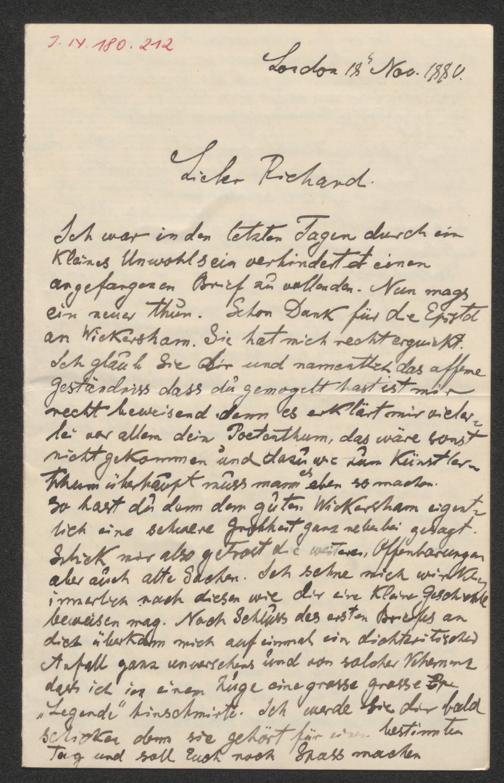 J. IV. 180. 212
London 18t Nov. 1880.
Lieber Richard.
Ich war in den letzten Tagen durch ein
kleines Unwohlsein verhindert einen
angefangenen Brief zu vollenden. Nun mags
ein neuer thun. Schon Dank für die Epistel
an Wickersham. Sie hat mich recht erquickt.
Ich glaub Sie dir und namentlich das offene
Geständniss dass du gemogelt hast ist mir
recht beweisend denn es erklärt mir vieler-
lei vor allem dein Poetenthum, das wäre sonst
nicht gekommen und dazu wie zum Künstler-
thum überhaupt muss mann es eben so machen.
So hast du denn dem guten Wickersham eigent-
lich eine schwere Grobheit ganz nebenbei gesagt.
Schick mir also getrost die weiteren Offenbarungen
aber auch alte Sachen. Ich sehne mich wirklich
innerlich nach diesen wie dir eine kleine Geschichte
beweisen mag. Nach Schluss des ersten Briefes an
dich überkam mich auf einmal ein dichteritischer
Anfall ganz unversehens und von solcher Vehemenz
dass ich in einem Zuge eine grosse grosse
"Legende" hinschmirte. Ich werde Sie dir bald
schicken denn sie gehört für einen bestimmten
Tag und soll Euch noch Spass machen